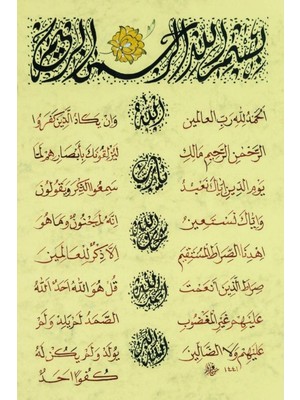 بسم الله الرحمن الرحيم
الحمد لله رب العالمين
الرحمن الرحيم مالك
يوم الدين إياك نعبد
وإياك نستعين
اهدنا الصراط المستقيم
صراط الذين أنعمت
عليهم غير المغضوب
عليهم ولا الضالين
١٤٤١
وإن يكاد الذين كفروا
ليزلقونك بأبصارهم لما
سمعوا الذكر ويقولون
إنه لمجنون وما هو
إلا ذكر للعالمين
قل هو الله أحد الله
الصمد لم يلد ولم
يولد ولم يكن له
كفوا أحد